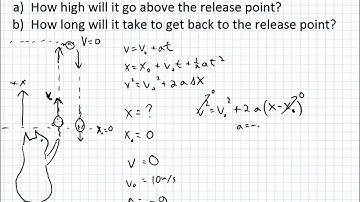 a) How high will it go above the release point?
b) How long will it take to get back to the release point?
V=0
+x
x=0
v = v₀ + at
x = x₀ + v₀t + ½at²
v² = v₀² + 2aΔx
x = ?
x₀ = 0
v = 0
v₀ = 10 m/s
a = -g
v²⁰ = v₀² + 2a(x-x₀⁰)
a = -